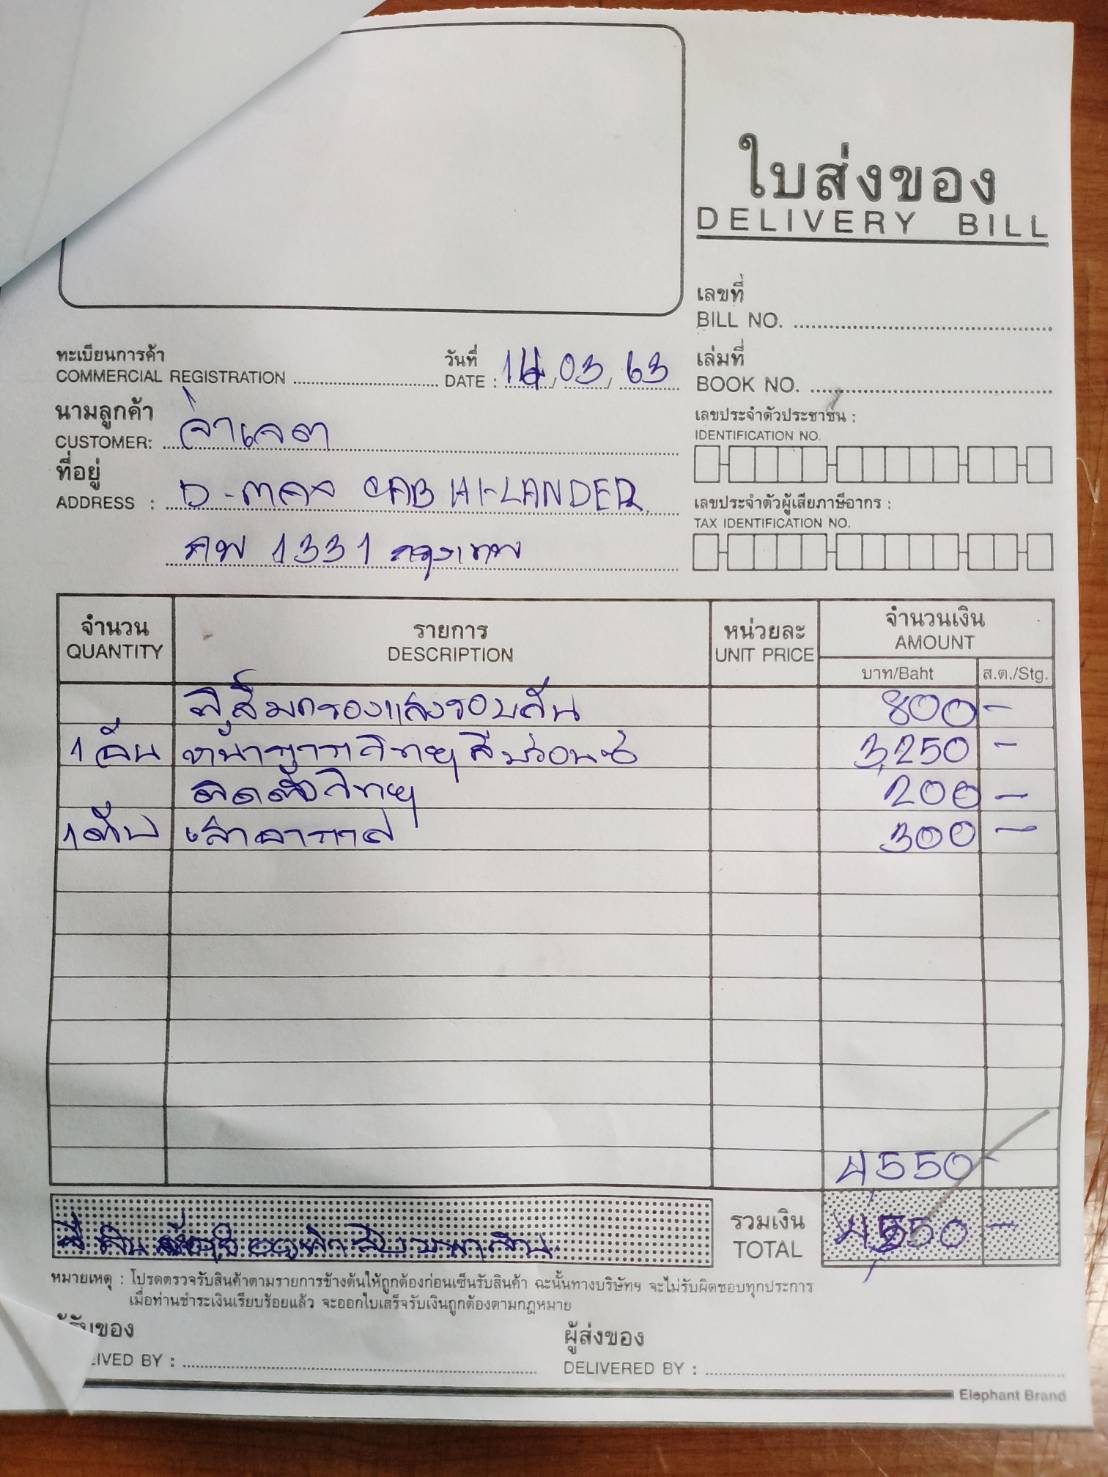 ใบส่งของ
DELIVERY BILL
เลขที่
BILL NO.
ทะเบียนการค้า
COMMERCIAL REGISTRATION
วันที่
DATE : 14, 03, 63
เล่มที่
BOOK NO.
นามลูกค้า
CUSTOMER: จ่าเจต
เลขประจำตัวประชาชน :
IDENTIFICATION NO.
ที่อยู่
ADDRESS : D-MAX CAB HI-LANDER
1331 กรุงเทพ
เลขประจำตัวผู้เสียภาษีอากร :
TAX IDENTIFICATION NO.
จำนวน
QUANTITY
รายการ
DESCRIPTION
หน่วยละ
UNIT PRICE
จำนวนเงิน
AMOUNT
บาท/Baht ส.ต./Stg.
ฟิล์มกรองแสงรอบคัน 800 -
1 อัน หน้ากากวิทยุสีบรอนซ์ 3,250 -
ติดตั้งวิทยุ 200 -
1 ต้น เสาอากาศ 300 -
4,550 -
รวมเงิน
TOTAL 4,550 -
หมายเหตุ : โปรดตรวจรับสินค้าตามรายการข้างต้นให้ถูกต้องก่อนเซ็นรับสินค้า ฉะนั้นทางบริษัทฯ จะไม่รับผิดชอบทุกประการ
เมื่อท่านชำระเงินเรียบร้อยแล้ว จะออกใบเสร็จรับเงินถูกต้องตามกฎหมาย
ของ
IVED BY :
ผู้ส่งของ
DELIVERED BY :
Elephant Brand